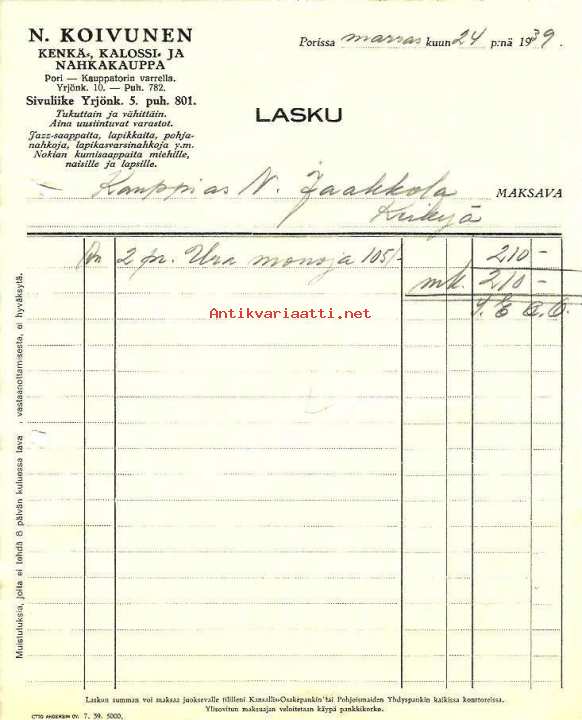 N. KOIVUNEN
KENKÄ-, KALOSSI- JA
NAHKAKAUPPA
Pori — Kauppatorin varrella.
Yrjönk. 10. — Puh. 782.
Sivuliike Yrjönk. 5. puh. 801.
Tukuttain ja vähittäin.
Aina uusiintuvat varastot.
Jazz-saappaita, lapikkaita, pohja-
nahkoja, lapikasvarsinahkoja y.m.
Nokian kumisaappaita miehille,
naisille ja lapsille.
Porissa marras kuun 24 p:nä 1939.
LASKU
Kauppias N. Jaakkola MAKSAVA
2 pr. Ura monoja 105/- 210 -
mk. 210 -
S. E. & O.
Antikvariaatti.net
Muistutuksia, joita ei tehdä 8 päivän kuluessa tava vastaanottamisesta, ei hyväksytä.
Laskun summan voi maksaa juoksevalle tililleni Kansallis-Osakepankin tai Pohjoismaiden Yhdyspankin kaikissa konttoreissa.
Yliovitun maksuajan veloitetaan käypä pankkikorko.
OTTO ANDERSIN OY. 7. 39. 5000.